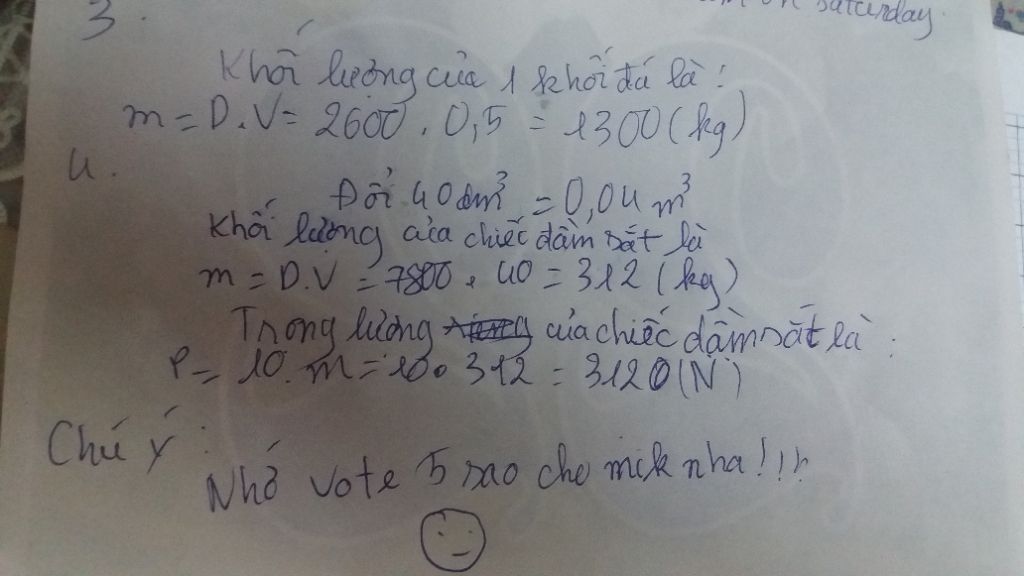 on Saturday.
3.
Khối lượng của 1 khối đá là:
m = D.V = 2600 . 0,5 = 1300 (kg)
4.
Đổi 40dm³ = 0,04 m³
Khối lượng của chiếc dầm sắt là
m = D.V = 7800 . 40 = 312 (kg)
Trọng lượng của chiếc dầm sắt là:
P = 10. m = 10. 312 = 3120 (N)
Chú ý:
Nhớ vote 5 sao cho mik nha!!!